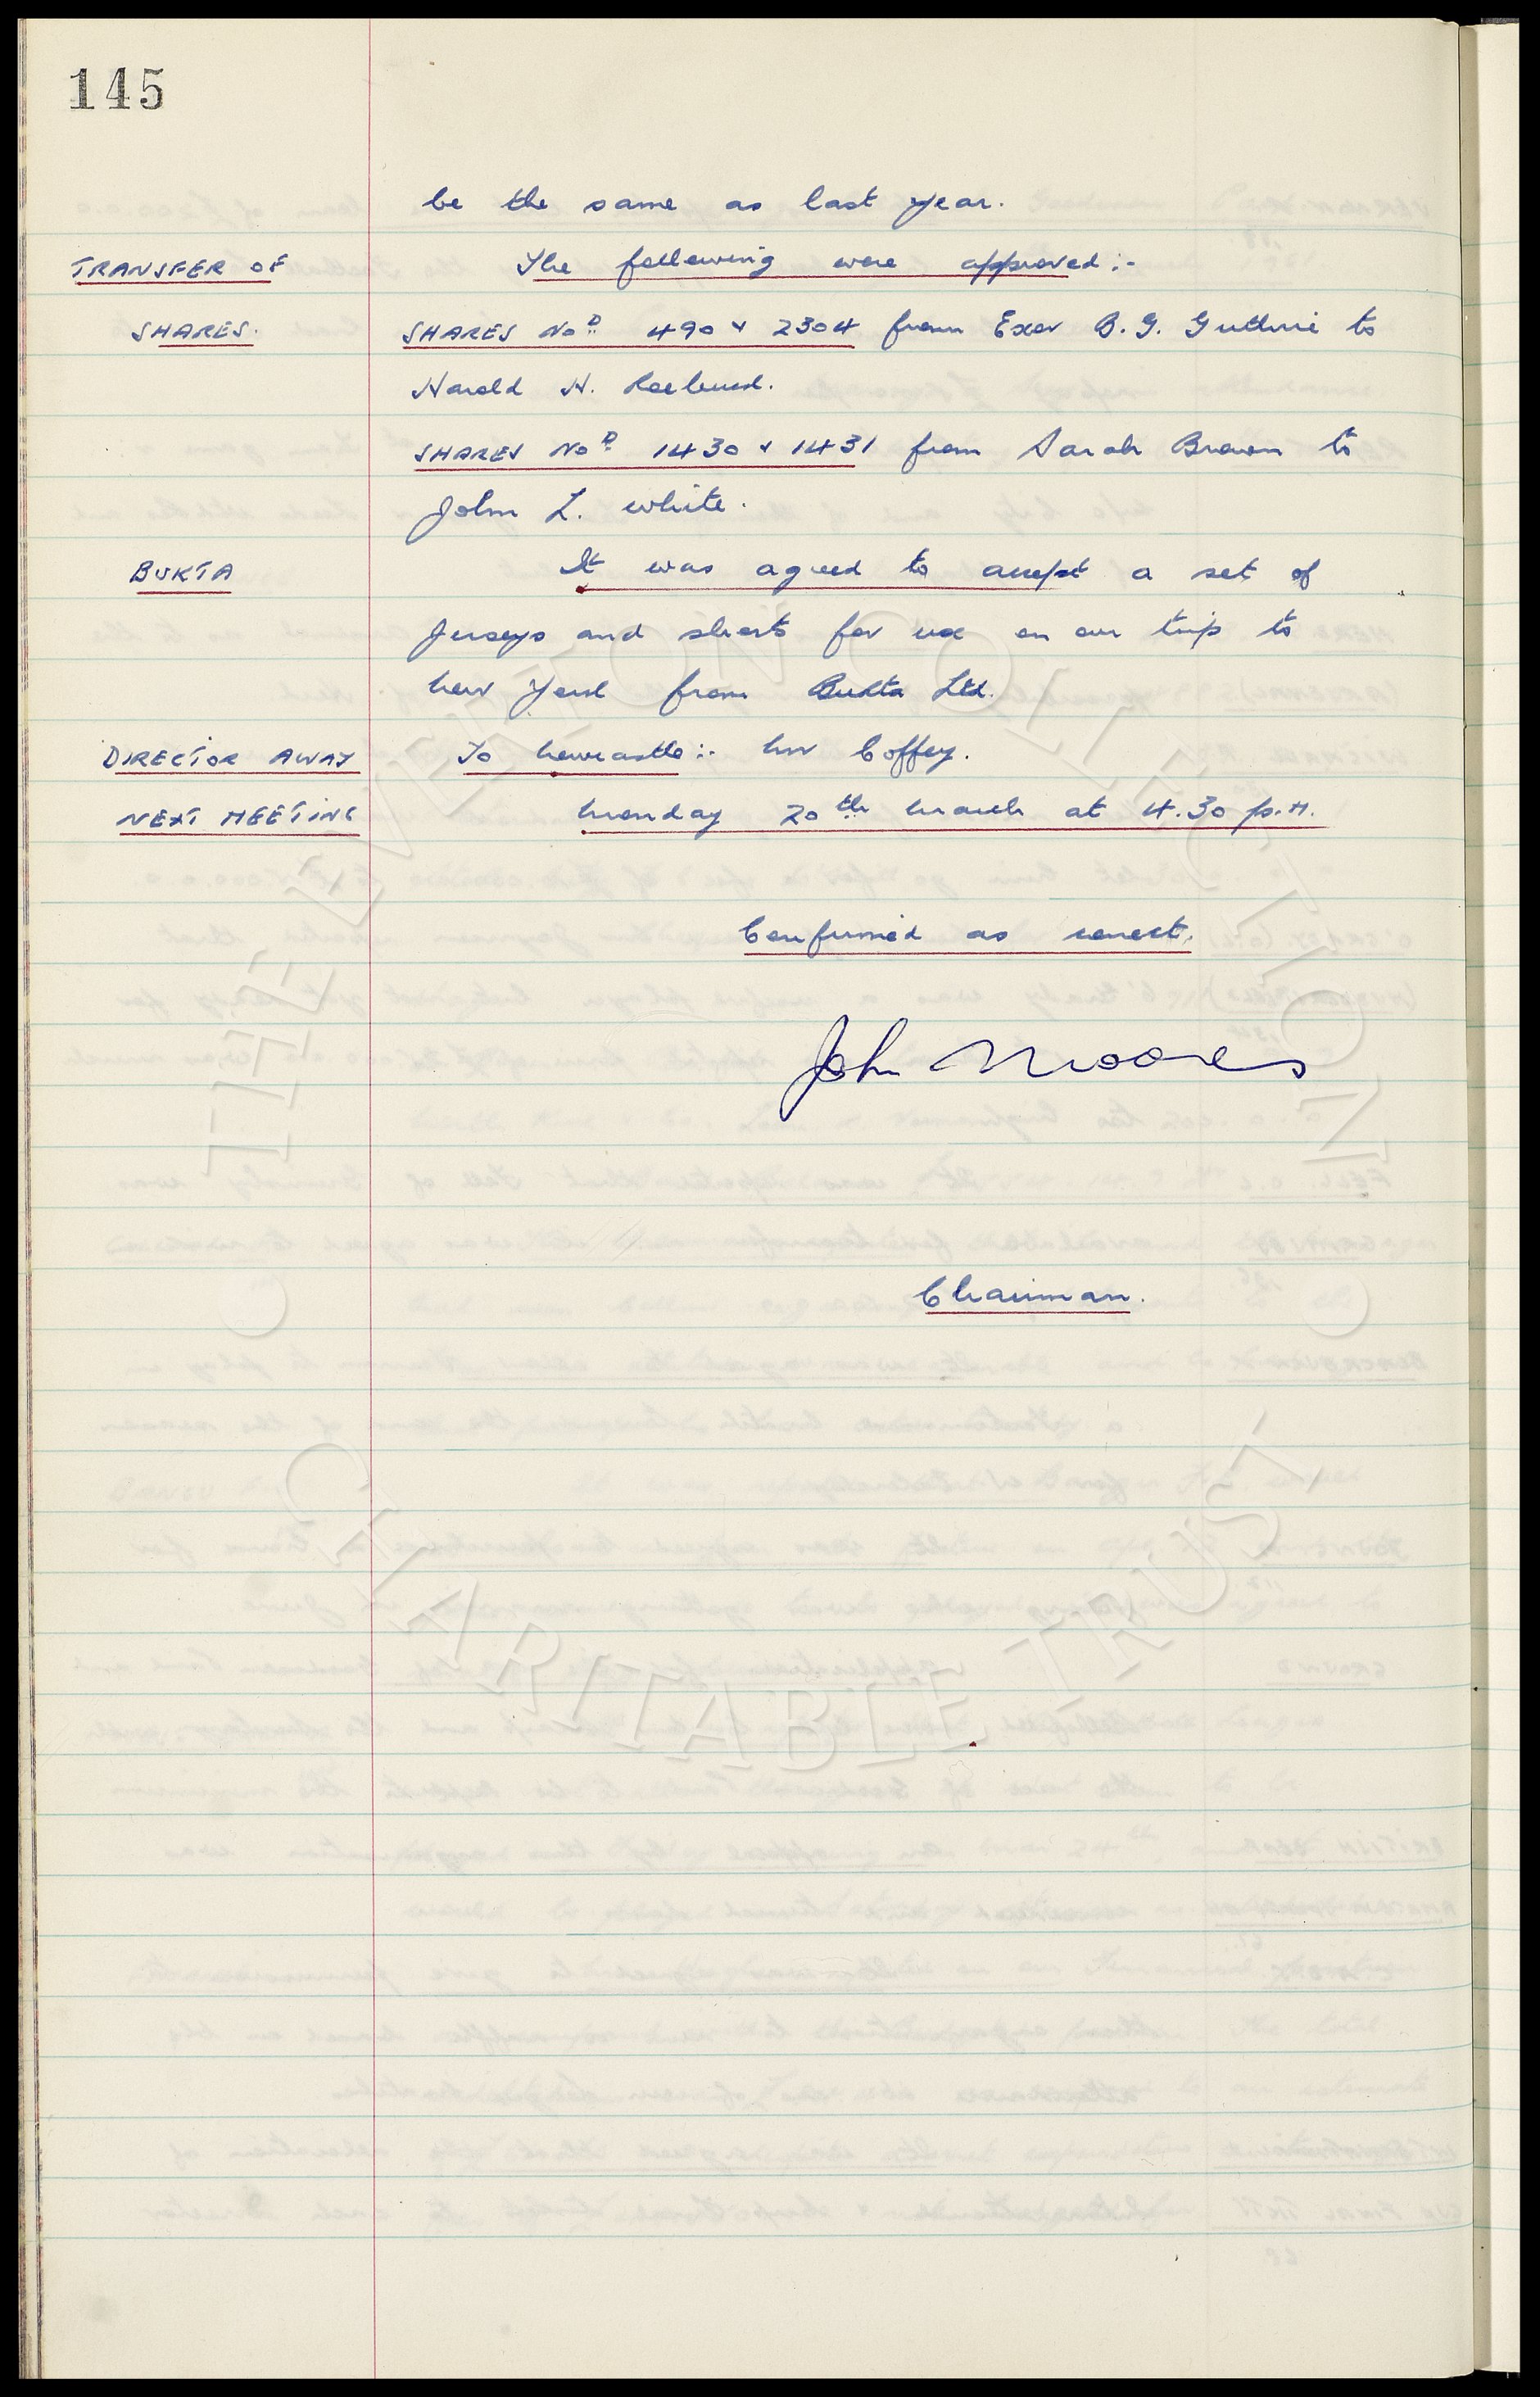 145
be the same as last year.
TRANSFER OF The following were approved :-
SHARES. SHARES Nos 490 & 2304 from Exor B. G. Guthrie to
Harold H.
SHARES Nos 1430 & 1431 from Sarah Brown to
John L. White.
BUKTA It was agreed to accept a set of
Jerseys and shorts for use on our trip to
New York from Bukta Ltd.
DIRECTOR AWAY To Newcastle :- Mr Coffey.
NEXT MEETING Monday 20th March at 4.30 p.m.
Confirmed as correct.
John Moores
Chairman.
THE EVERTON COLLECTION
CHARITABLE TRUST